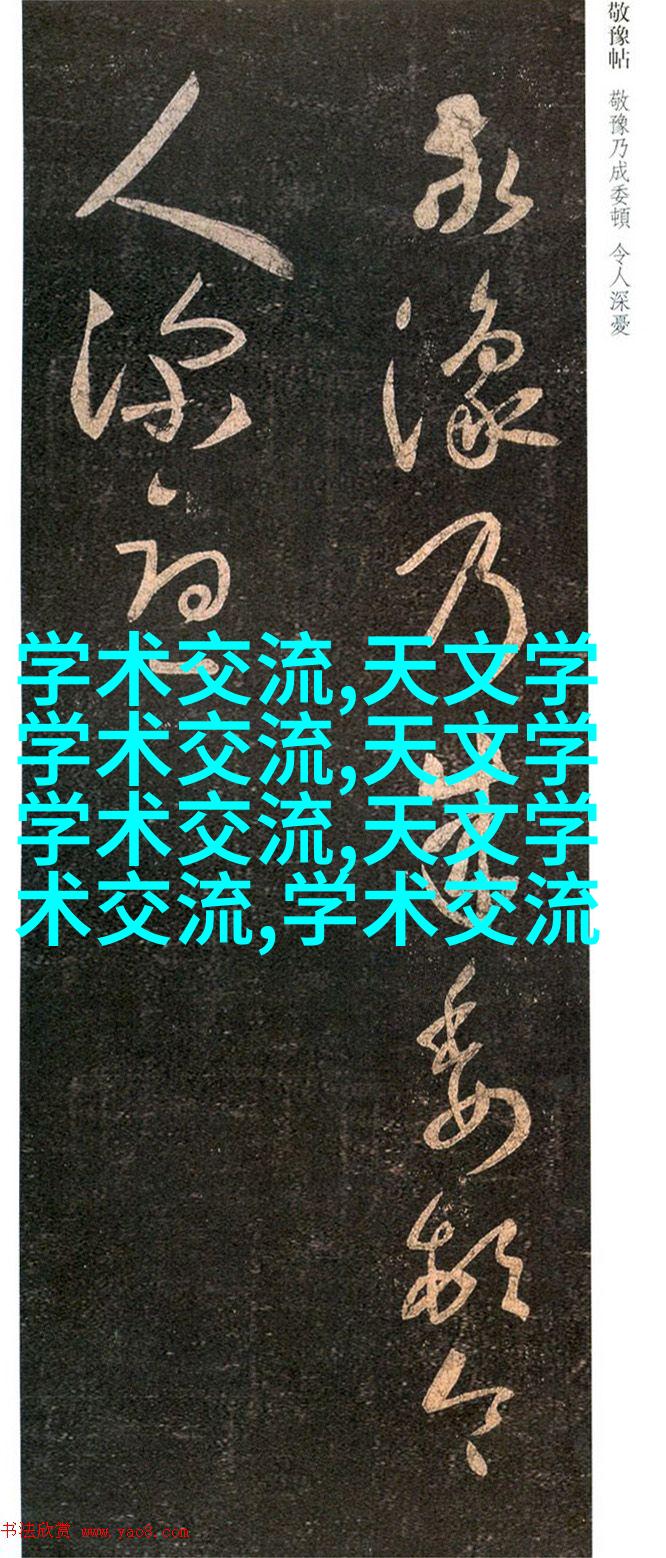 敬豫帖 敬豫乃成委頓 令人深憂
敬豫乃成委頓令
人深憂
学术交流,天文学
学术交流,天文学
学术交流,天文学
术交流,学术交流
书法欣赏 www.yac8.com